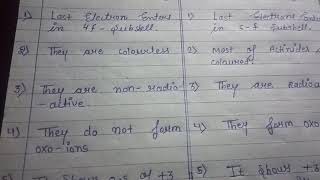 1) Last Electron Enters
in 4f - Subshell.
2) They are colourless
3) They are non-radio
-active.
4) They do not form
oxo-ions
1) Last Electrons Enters
in 5-f Subshell.
2) Most of Actinides
coloured.
3) They are Radioa
4) They form oxo
5) It shows +3